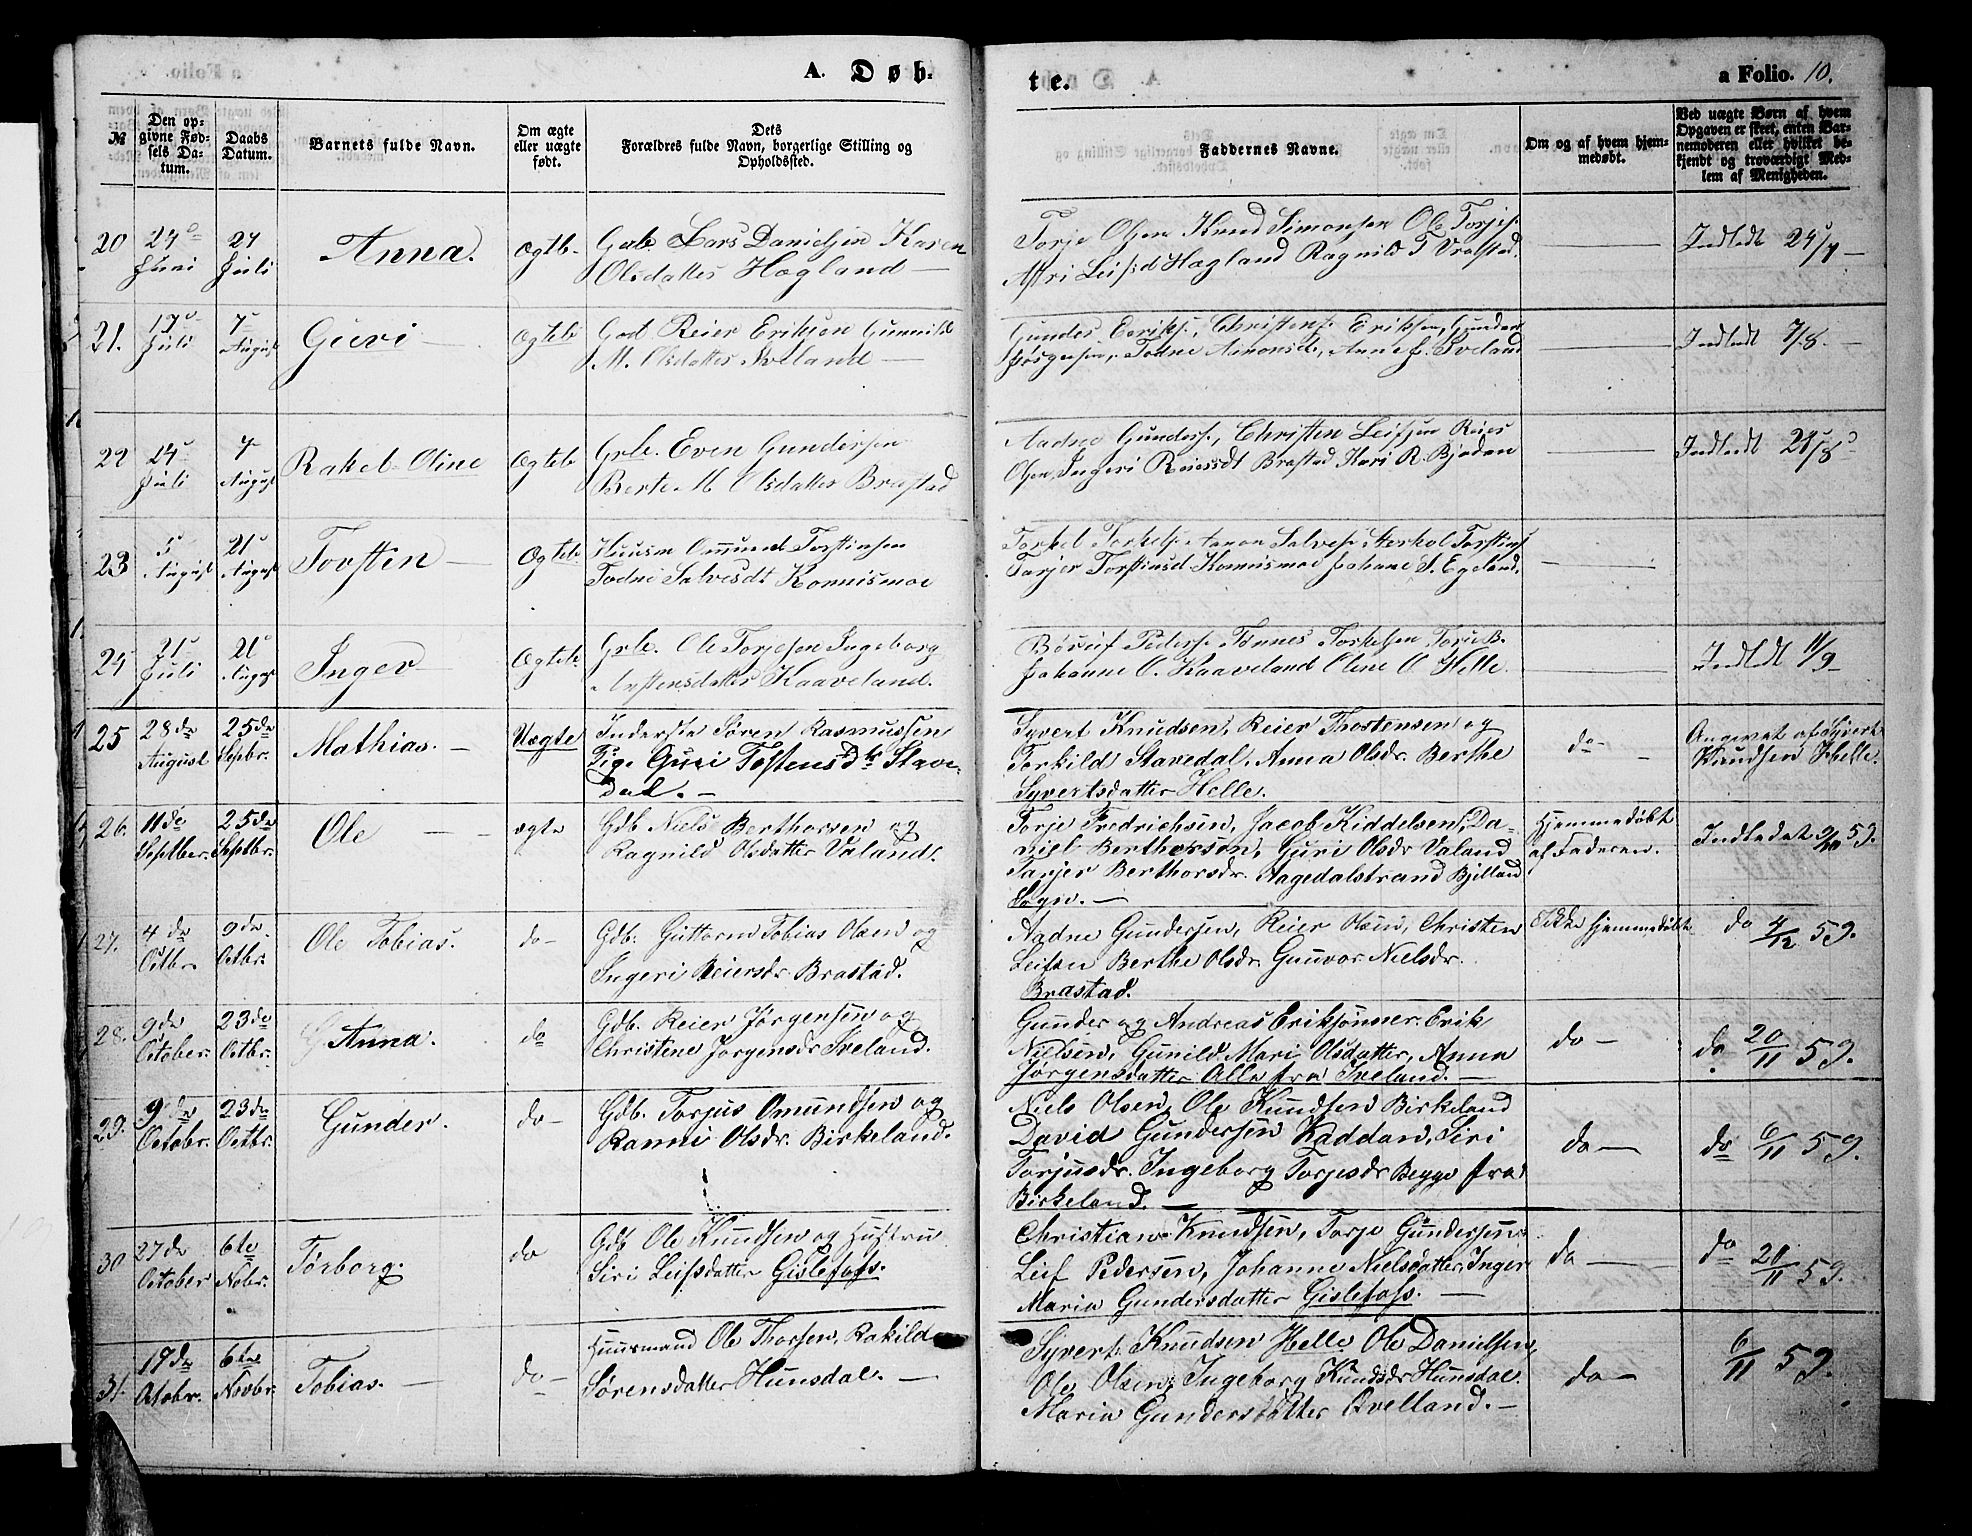 A. Døb-
te.
a Folio. 10.
№
Den op-
givne Fød-
sels Da-
tum.
Daabs
Datum.
Barnets fulde Navn.
Om ægte
eller uægte
født.
Dets
Forældres fulde Navn, borgerlige Stilling og
Opholdssted.
Faddernes Navne.
Om og af hvem hjem-
medøbt.
Ved uægte Børn af hvem
Opgaven er skeet, enten Bar-
nemoderen eller hvilket be-
kjendt og troværdigt Med-
lem af Menigheden.
20
24
Juni
24
Juli
Anna.
Ægtb.
Grb. Lars Danielsen Karen
Olsdatter Høgland —
Torje Olsen Knud Simonsen Ole Torjes.
Leifsd Høgland Ragnild T Vralstad.
Indledt 24/7 —
21.
17
Juli
7
August
Guri —
Ægteb
Gbd Reier Eriksen Gunnild
M. Olsdatter Sveland —
Gunder Eeriks., Christens. Eriksen, Gunder
Jørgensen, Todne Simonsd., Anne J. Sveland
Indledt 7/8. —
22
24
Juli
7
August
Rakel Oline
Ægteb
Grb. Even Gundersen
Berte M Olsdatter Brastad
Aadne Gunders., Christen Leifsen Reier
Olsen, Ingeri Reiersdt Brastad Kari R. Bjødan
Indledt 21/8
23
5
August
21
August
Torsten —
Ægteb.
Huusm Omund Torstinsen
Todni Salvesdt Konnismoe
Torkel Torkels. Aanon Salves. Torstins
Tarjer Torstinsd Konnismoe Johane S. Egeland.
24
21
Juli
21
August
Inger —
Ægteb
Grb. Ole Torjesen Ingeborg
Aystensdatter Kaaveland.
Børuf Peders. Tønnes Torkelsen
Johanne O. Kaaveland Oline O Helle.
Indledt 11/9
25
28de
August
25de
Septbr.
Mathias. —
Uægte
Inderste Søren Rasmussen
Pige Guri Tostensdtr Stave-
dal. —
Syvert Knudsen, Reier Thostensen og
Torkild Stavedal, Anna Olsdr. Berthe
Syvertsdatter Helle.
do —
Angivet af Syvert
Knudsen Helle.
26.
11de
Septber.
25de
Septbr.
Ole — —
ægte
Gdb. Niels Berthorsen og
Ragnild Olsdatter Valand.
Torje Fredrichsen, Jacob Kiddelsen, Da-
niel Berthorsen, Guri Olsdr Valand
Tarjer Berthorsdr. Aagedalstrand Bjelland
Sogn. —
Hjemmedøbt
af Faderen.
Indledet 9/10 59.
27.
4de
Octbr.
9de
Octbr.
Ole Tobias.
do —
Gdb. Guttorm Tobias Olsen og
Ingeri Reiersdr. Brastad.
Aadne Gundersen, Reier Olsen, Christen
Leifsen Berthe Olsdr. Gunvor Nielsdr.
Brastad.
Ikke Hjemmedøbt
do 4/12 59.
28.
9de
October.
23de
Octbr.
Anna.
do
Gdb. Reier Jørgensen og
Christene Jørgensdr Sveland.
Gunder og Andreas Eriksønner. Erik
Nielsen, Gunild Mari Olsdatter, Anna
Jørgensdatter Alle fra Sveland. —
do —
do. 20/11 59.
29.
9de
Octobr.
23de
Octbr.
Gunder.
do —
Gdb. Torjus Omundsen og
Ranni Olsdr. Birkeland.
Niels Olsen, Ole Knudsen Birkeland
David Gundersen Kaddan, Siri
Torjusdr. Ingeborg Torjesdr Begge fra
Birkeland. —
do —
do 6/11 59.
30
27de
October
6te
Nobr.
Tørborg.
do
Gdb Ole Knudsen og Hustru
Siri Leifsdatter Gislefoss.
Christian Knudsen, Torje Gundersen
Leif Pedersen, Johanne Nielsdatter, Inger
Maria Gundersdatter Gislefoss. —
do —
do 20/11 59.
31.
17de
Octobr.
6te
Novbr.
Tobias. —
do —
Huusmand Ole Thorsen, Rakild
Sørensdatter Hunsdal. —
Syvert Knudsen Helle Ole Danielsen
Ole Olsen, Ingeborg Knudsdr Hunsdal.
Maria Gundersdatter Qvelland. —
do —
6/11 59.